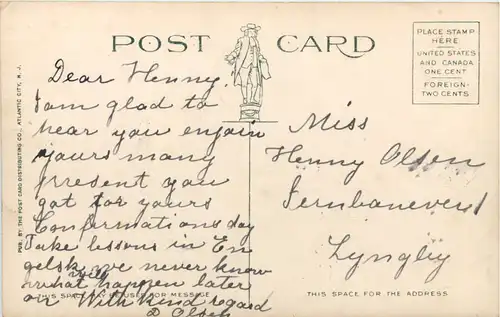 POST CARD
PLACE STAMP
HERE
UNITED STATES
AND CANADA
ONE CENT
FOREIGN-
TWO CENTS
PUB. BY THE POST CARD DISTRIBUTING CO., ATLANTIC CITY, N. J.
Dear Henny
I am glad to
hear you enjoin
yours many
present you
got for yours
Confirmations day
Take lessons in En
gelsk we never know
what will happen later
on With kind regard
D Olsen
THIS SPACE MAY BE USED FOR MESSAGE
Miss
Henny Olsen
Jernbanevej
Lyngby
THIS SPACE FOR THE ADDRESS